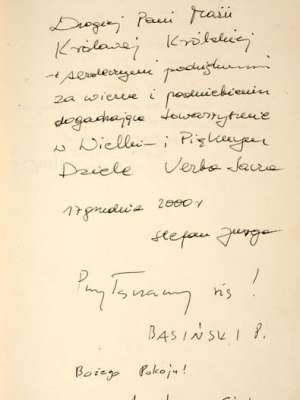 Drogiej Pani Marii
Królowej Królskiej
z serdecznymi podziękowaniami
za wierne i podniebieniu
dogadzające towarzyszenie
w Wielkim i Pięknym
Dziele Verba Sacra
17 grudnia 2000 r
Stefan Jurga
Przyłączamy się!
BASIŃSKI P.
Bożego Pokoju!